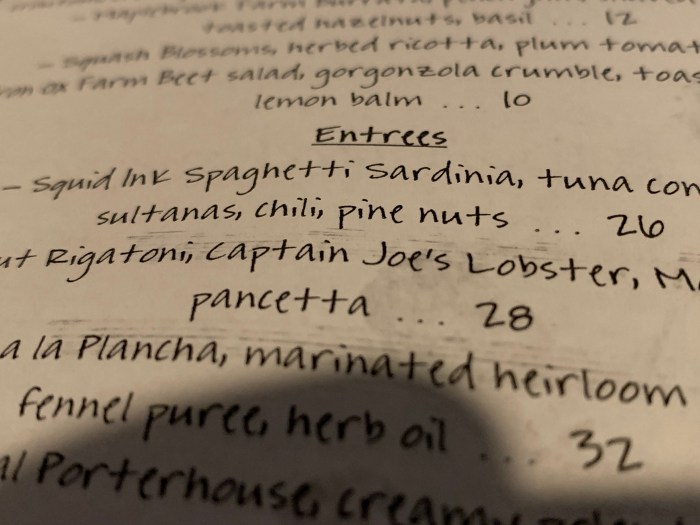 Farm
toasted hazelnuts, basil ... 12
- Squash Blossoms, herbed ricotta, plum tomat
ox Farm Beet salad, gorgonzola crumble, toas
lemon balm ... 10
Entrees
- Squid Ink Spaghetti Sardinia, tuna con
sultanas, chili, pine nuts ... 26
ut Rigatoni, Captain Joe's Lobster, Ma
pancetta ... 28
a la Plancha, marinated heirloom
fennel puree, herb oil ... 32
al Porterhouse, creamy